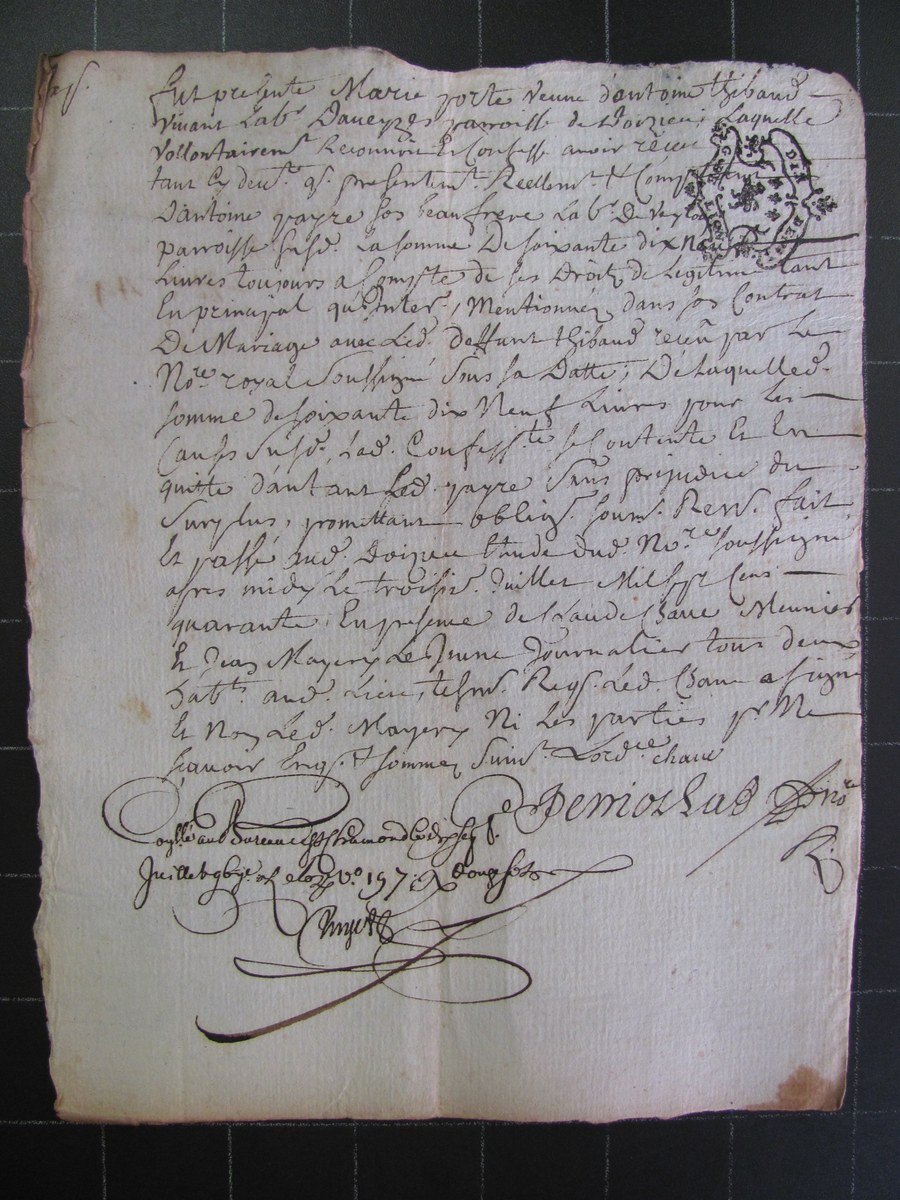 Fut presente Marie porte veuve d'antoine thibaud
vivant Lab.r D'aveyzes parroisse de Laquelle
vollontairem.t Reconnoit Et Confesse avoir reçeu
tant Cy dev.t q.e presentem.t Reellem.t & Compt
D'antoine payre son beaufrere Lab.r De Veylo
parroisse susd. La somme De soixante dix Neuf
Livres toujours a Compte de ses Droits de Legitime tant
En principal qu'Inter. Mentionnéz dans son Contrat
De Mariage avec Led. deffunt thibaud reçeu par Le
No.re royal soussigné sous sa Datte, De Laquelle d.
somme de soixante dix Neuf Livres pour Les
Causes susd. Lad. Confess.te se Contente Et En
quitte d'autant Led. payre sans prejudice du
surplus, promettant oblig. soum. Renv. fait
Et passé aud. Etude dud. No.re soussigné
apres midy Le troisie. Juillet Mil sept Cens
quarante, En presence de Claude Chave Meunier
Et Jean Mayery Le Jeune Journalier tous deux
hab.ts aud. Lieu, tesm. Reqs. Led. Chave a signé
Et Non Led. Mayery Ni Les parties p.r Ne
sçavoir Enq. & sommez suiv.t L'ord.ce chave
no.re
R.
au Bureau de
Juillet v.o 197 Douze sols